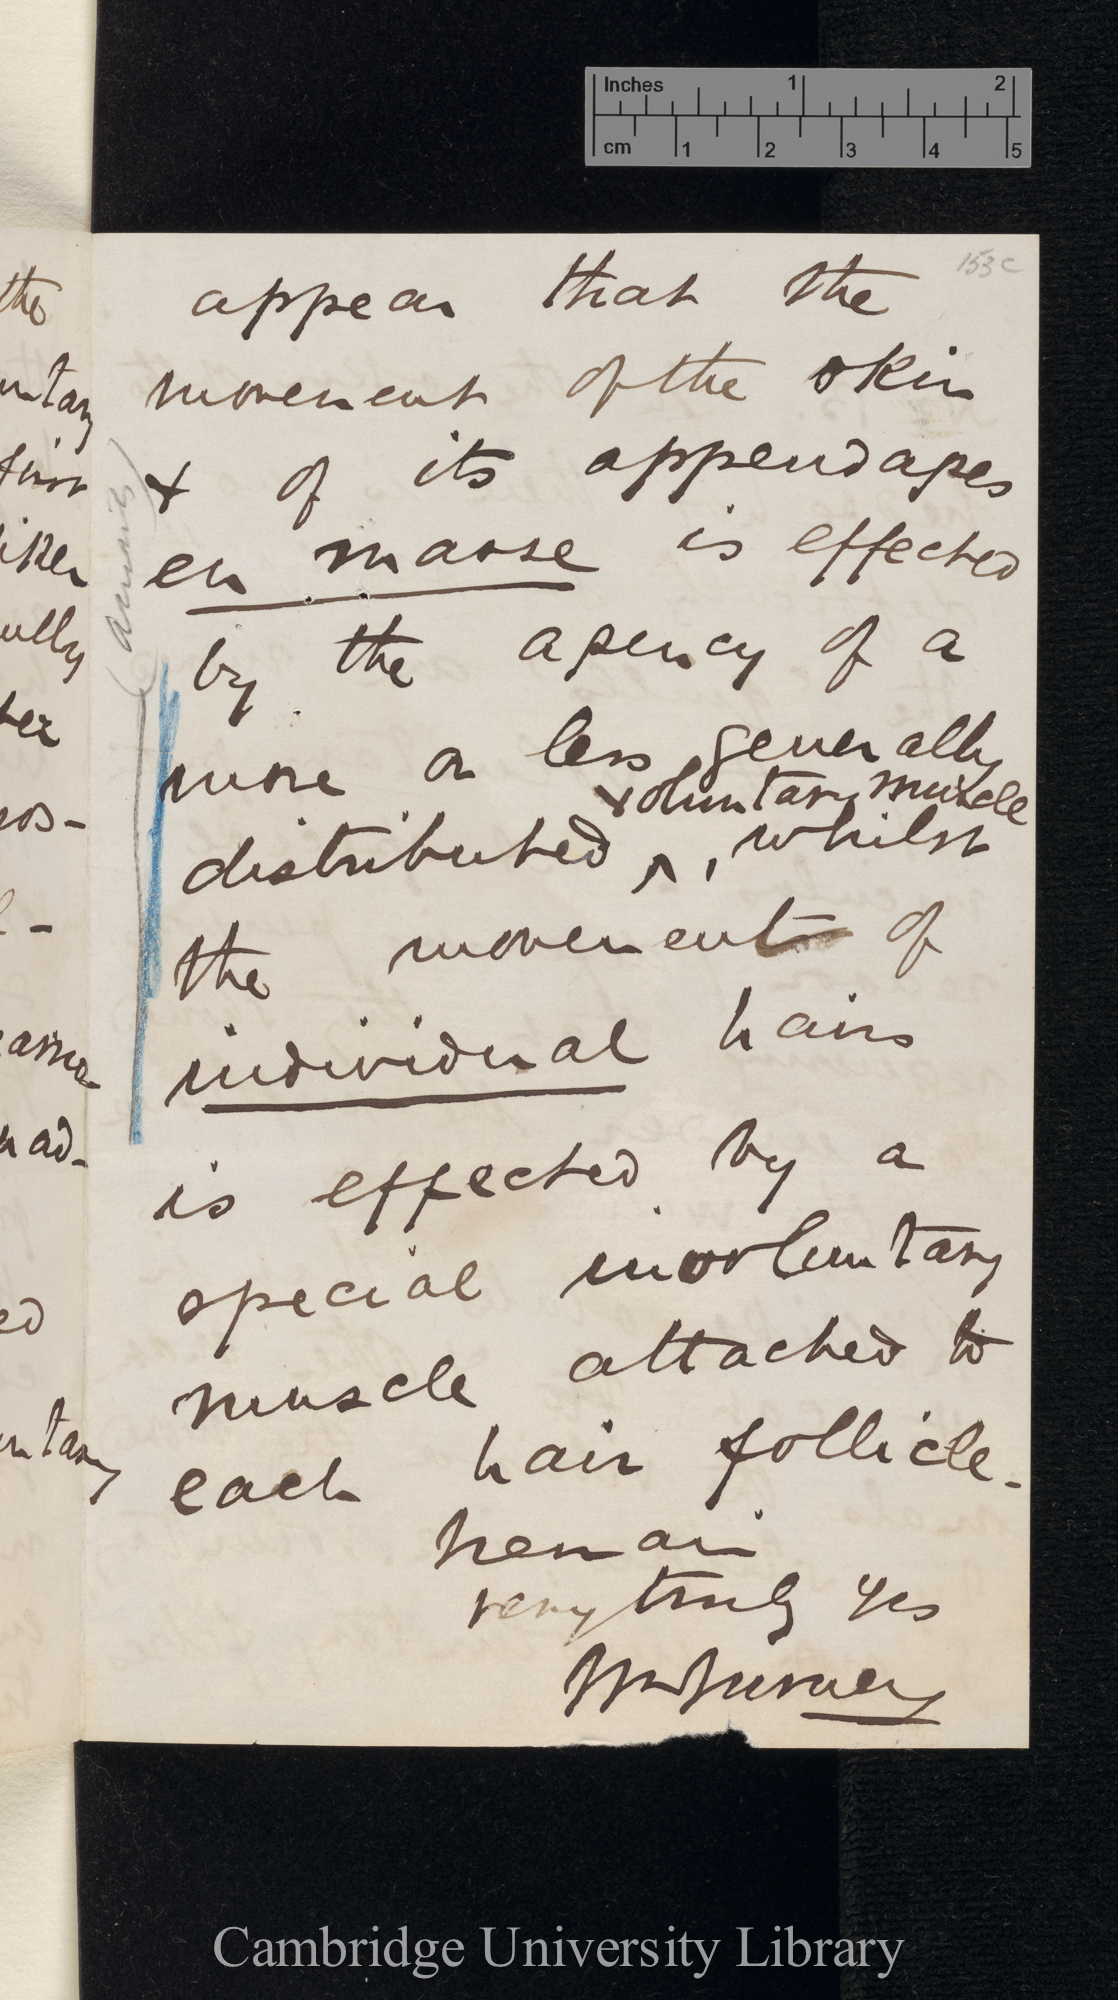 Inches 1 2
cm 1 2 3 4 5
153c
appear that the
movement of the skin
& of its appendages
en masse is effected
by the agency of a
more or less generally
voluntary muscle
distributed ^, whilst
the movement of
individual hairs
is effected by a
special involuntary
muscle attached to
each hair follicle.
remain
very truly yrs
Wm Turner
the
untary
ully
ter
pos-
ed
untary
Cambridge University Library